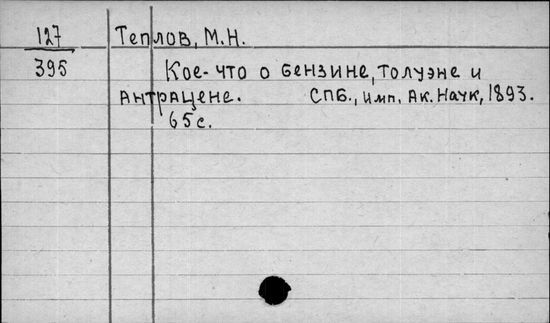 127 Теплов, М.Н.
395 Кое-что о бензине, толуэне и
антрацене. СПб., имп. Ак. Наук, 1893.
65 с.